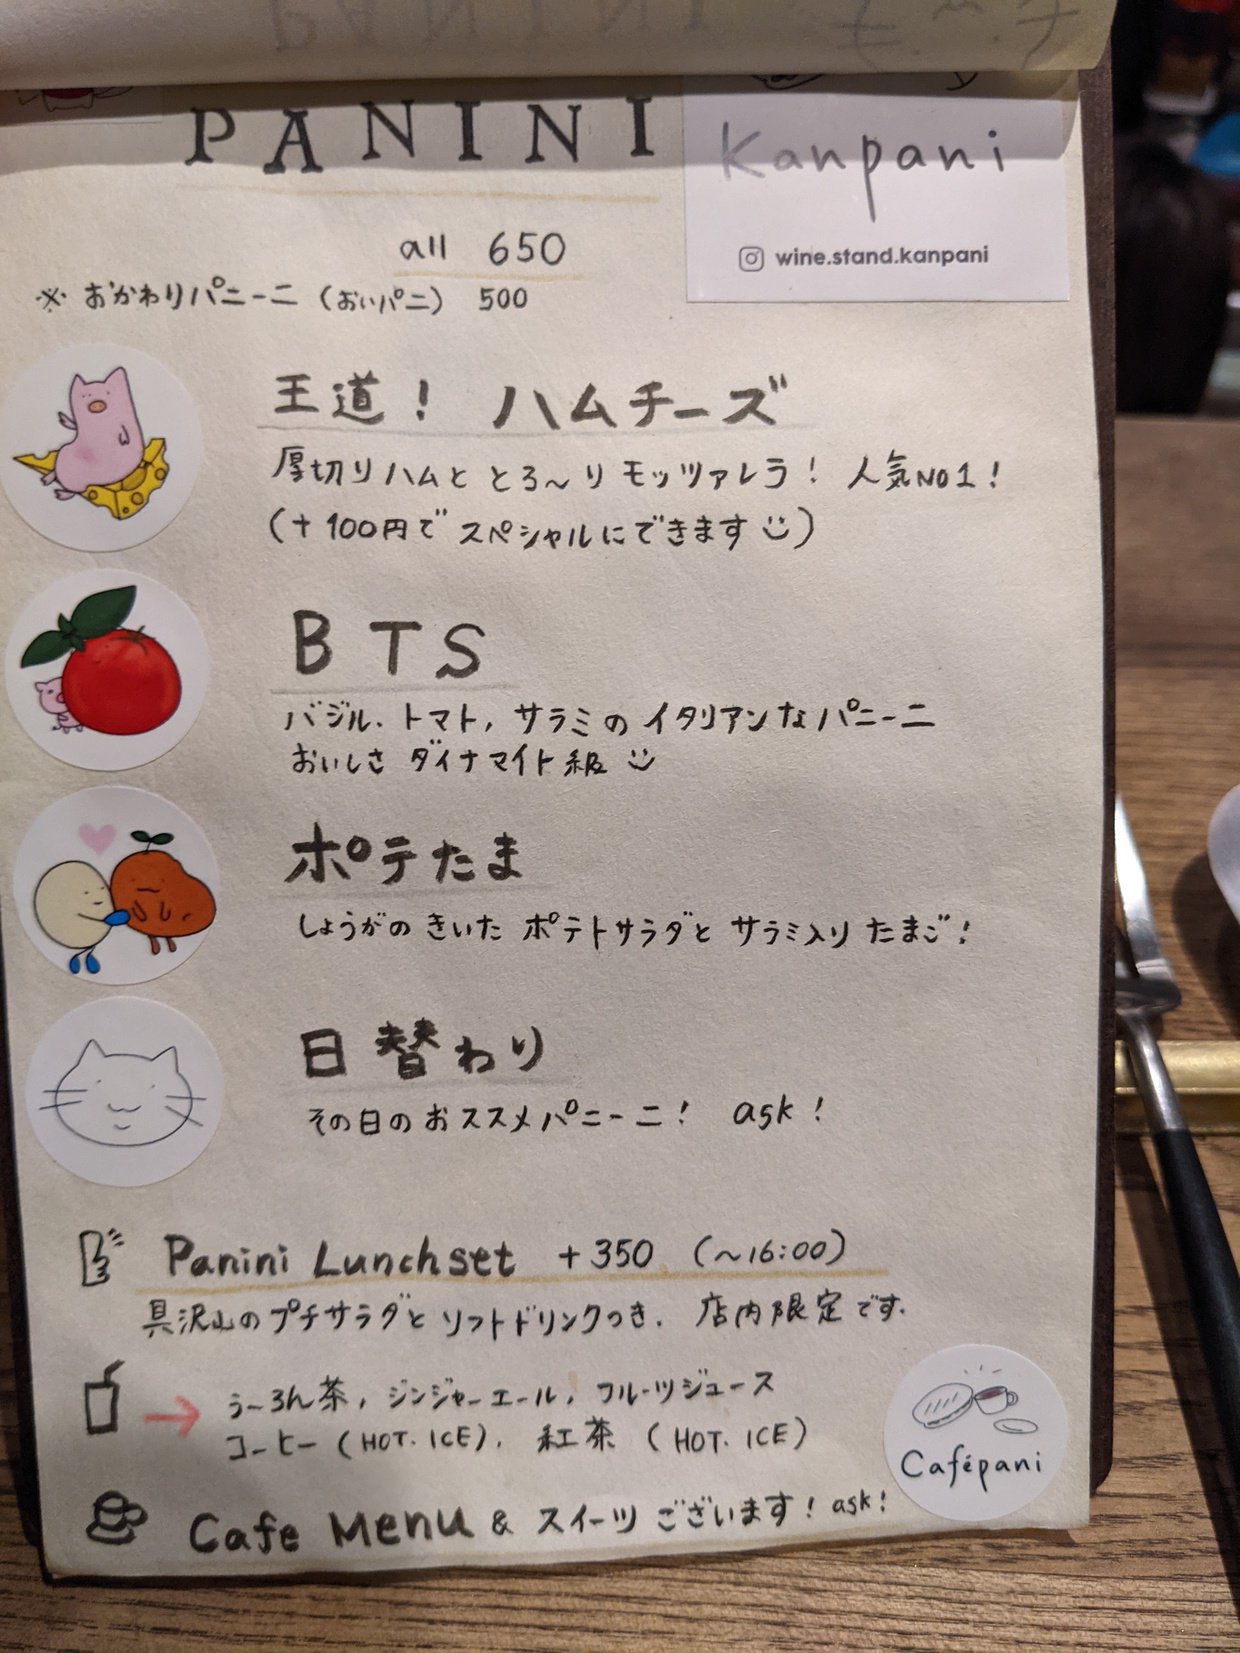 PANINI
Kanpani
wine.stand.kanpani
all 650
※ おかわりパニーニ (おいパニ) 500
王道! ハムチーズ
厚切りハムと とろ〜り モッツァレラ! 人気NO1!
(+100円で スペシャルにできます)
BTS
バジル、トマト, サラミの イタリアンな パニーニ
おいしさ ダイナマイト級
ポテたま
しょうがの きいた ポテトサラダと サラミ入り たまご!
日替わり
その日のおススメパニーニ! ask!
Panini Lunch set +350 (〜16:00)
具沢山のプチサラダと ソフトドリンクつき. 店内限定です.
うーろん茶, ジンジャーエール, フルーツジュース
コーヒー (HOT. ICE), 紅茶 (HOT. ICE)
Cafépani
Cafe Menu & スイーツ ございます! ask!